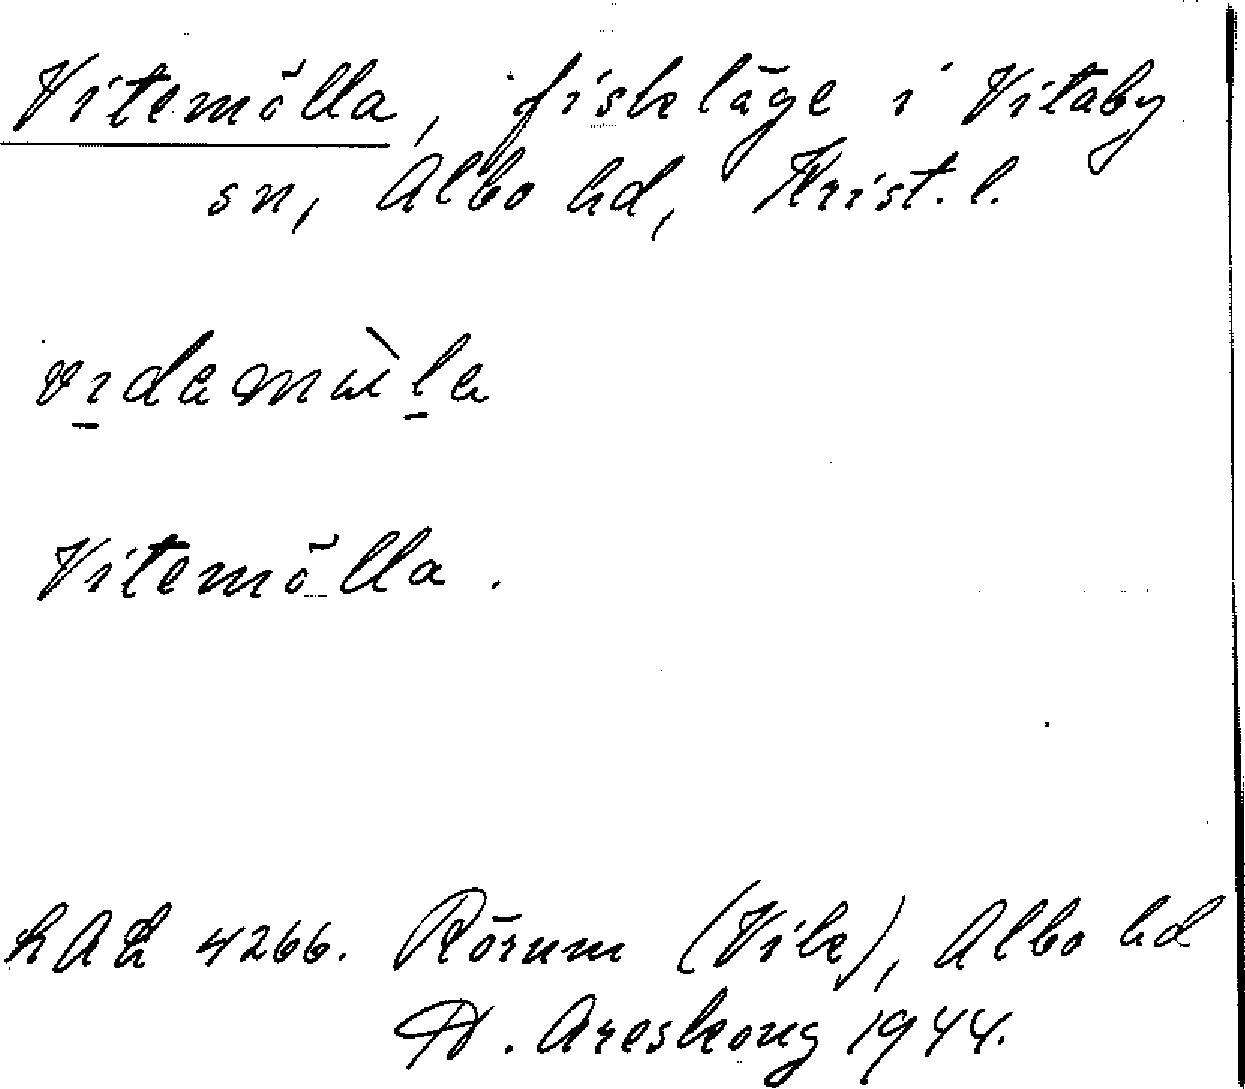 Vitemölla, fiskläge i Vitaby
sn, Albo hd, Krist. l.
Vitemölla.
LAL 4266. Rörum (Vik), Albo hd
Areskoug 1944.